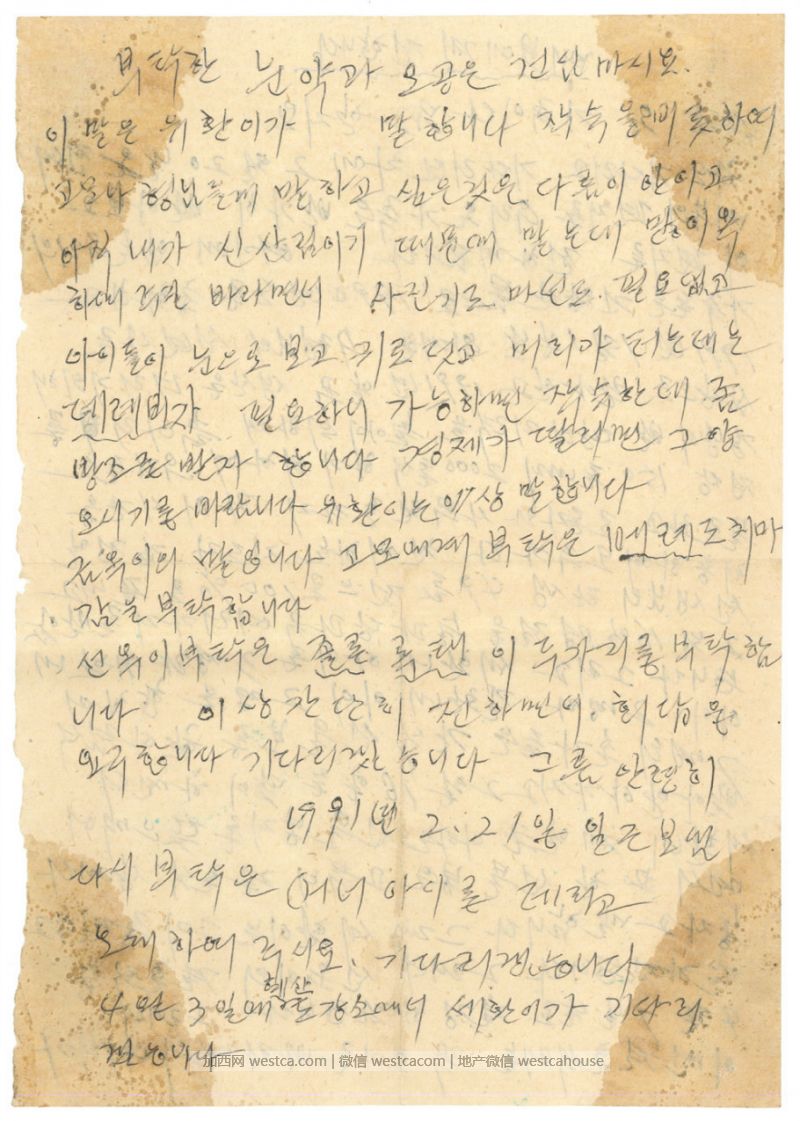 부탁한 눈약과 오공은 근심 마시요.
이 말은 위환이가 말합니다 재숙을 비롯하여
고모나 형님들께 말하고 싶은것은 다름이 안이고
아직 내가 신산점이기 때문에 말는데 많이
바라면서 사진기로 마선도 필요없고
아이들이 눈으로 보고 귀로 딋고 머리가 티는데는
떼레비자 필요하니 가능하면 재숙한데 좀
방조를 받자 합니다 경제가 딸리면 그양
오시기를 바랍니다 위환이는 이상 말합니다
금옥이의 말입니다 고모에게 부탁은 떼렌도치마
감을 부탁합니다
선옥이부탁은 쫄쫄 이 두가리를 부탁함
니다 이상 간단히 전하면서. 회답을
요구합니다 기다리겠습니다 그름 안령히
1991년 2.21일 일근보냄
다시 부탁은 (처녀아이를 데리고
오데하여 주시요. 기다리겠습니다
4월 3일에 에서 세환이가 기다리
겠습니다
加西网 westca.com | 微信 westcacom | 地产微信 westcahouse